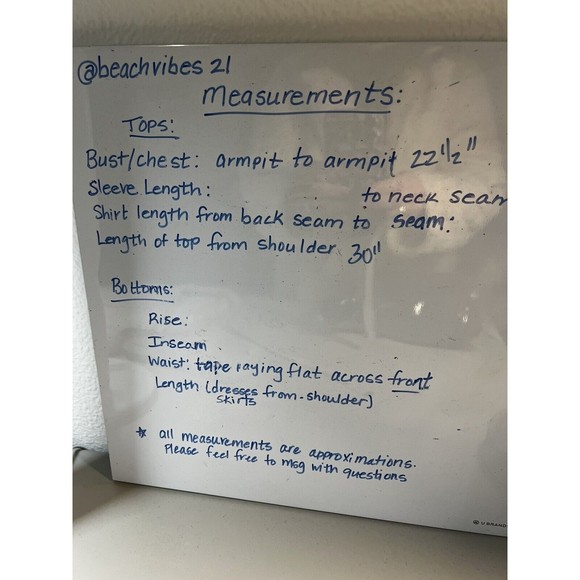 @beachvibes 21
Measurements:
TOPS:
Bust/chest: armpit to armpit 22 1/2"
Sleeve Length: to neck seam
Shirt length from back seam to seam:
Length of top from shoulder 30"
Bottoms:
Rise:
Inseam
Waist: tape laying flat across front
Length (dresses from shoulder)
skirts
* all measurements are approximations.
Please feel free to msg with questions
U BRANDS